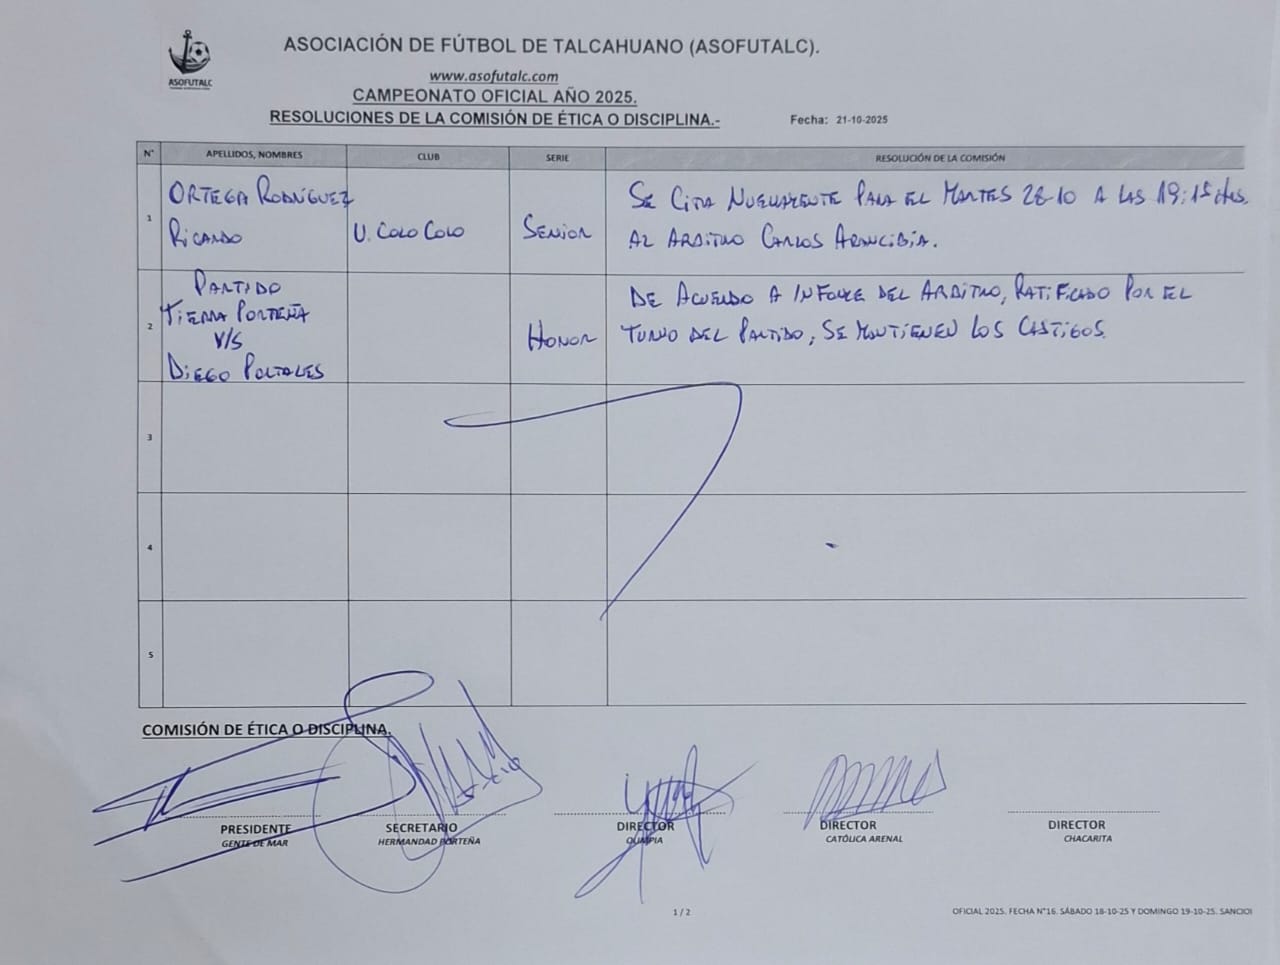 ASOCIACIÓN DE FÚTBOL DE TALCAHUANO (ASOFUTALC).
ASOFUTALC
www.asofutalc.com
CAMPEONATO OFICIAL AÑO 2025.
RESOLUCIONES DE LA COMISIÓN DE ÉTICA O DISCIPLINA.-
Fecha: 21-10-2025
N° APELLIDOS, NOMBRES CLUB SERIE RESOLUCIÓN DE LA COMISIÓN
1
ORTEGA RODRÍGUEZ
RICARDO
U. COLO COLO
SENIOR
SE CITA NUEVAMENTE PARA EL MARTES 28-10 A LAS 19:15 Hrs.
AL ARBITRO CARLOS ARANCIBIA.
2
PARTIDO
TIERRA PORTEÑA
V/S
DIEGO PORTALES
HONOR
DE ACUERDO A INFORME DEL ARBITRO, RATIFICADO POR EL
TURNO DEL PARTIDO, SE MANTIENEN LOS CASTIGOS.
3
4
5
COMISIÓN DE ÉTICA O DISCIPLINA.
PRESIDENTE SECRETARIO DIRECTOR DIRECTOR DIRECTOR
GENTE DE MAR HERMANDAD PORTEÑA OLIMPIA CATÓLICA ARENAL CHACARITA
1 / 2
OFICIAL 2025. FECHA N°16. SÁBADO 18-10-25 Y DOMINGO 19-10-25. SANCIOI